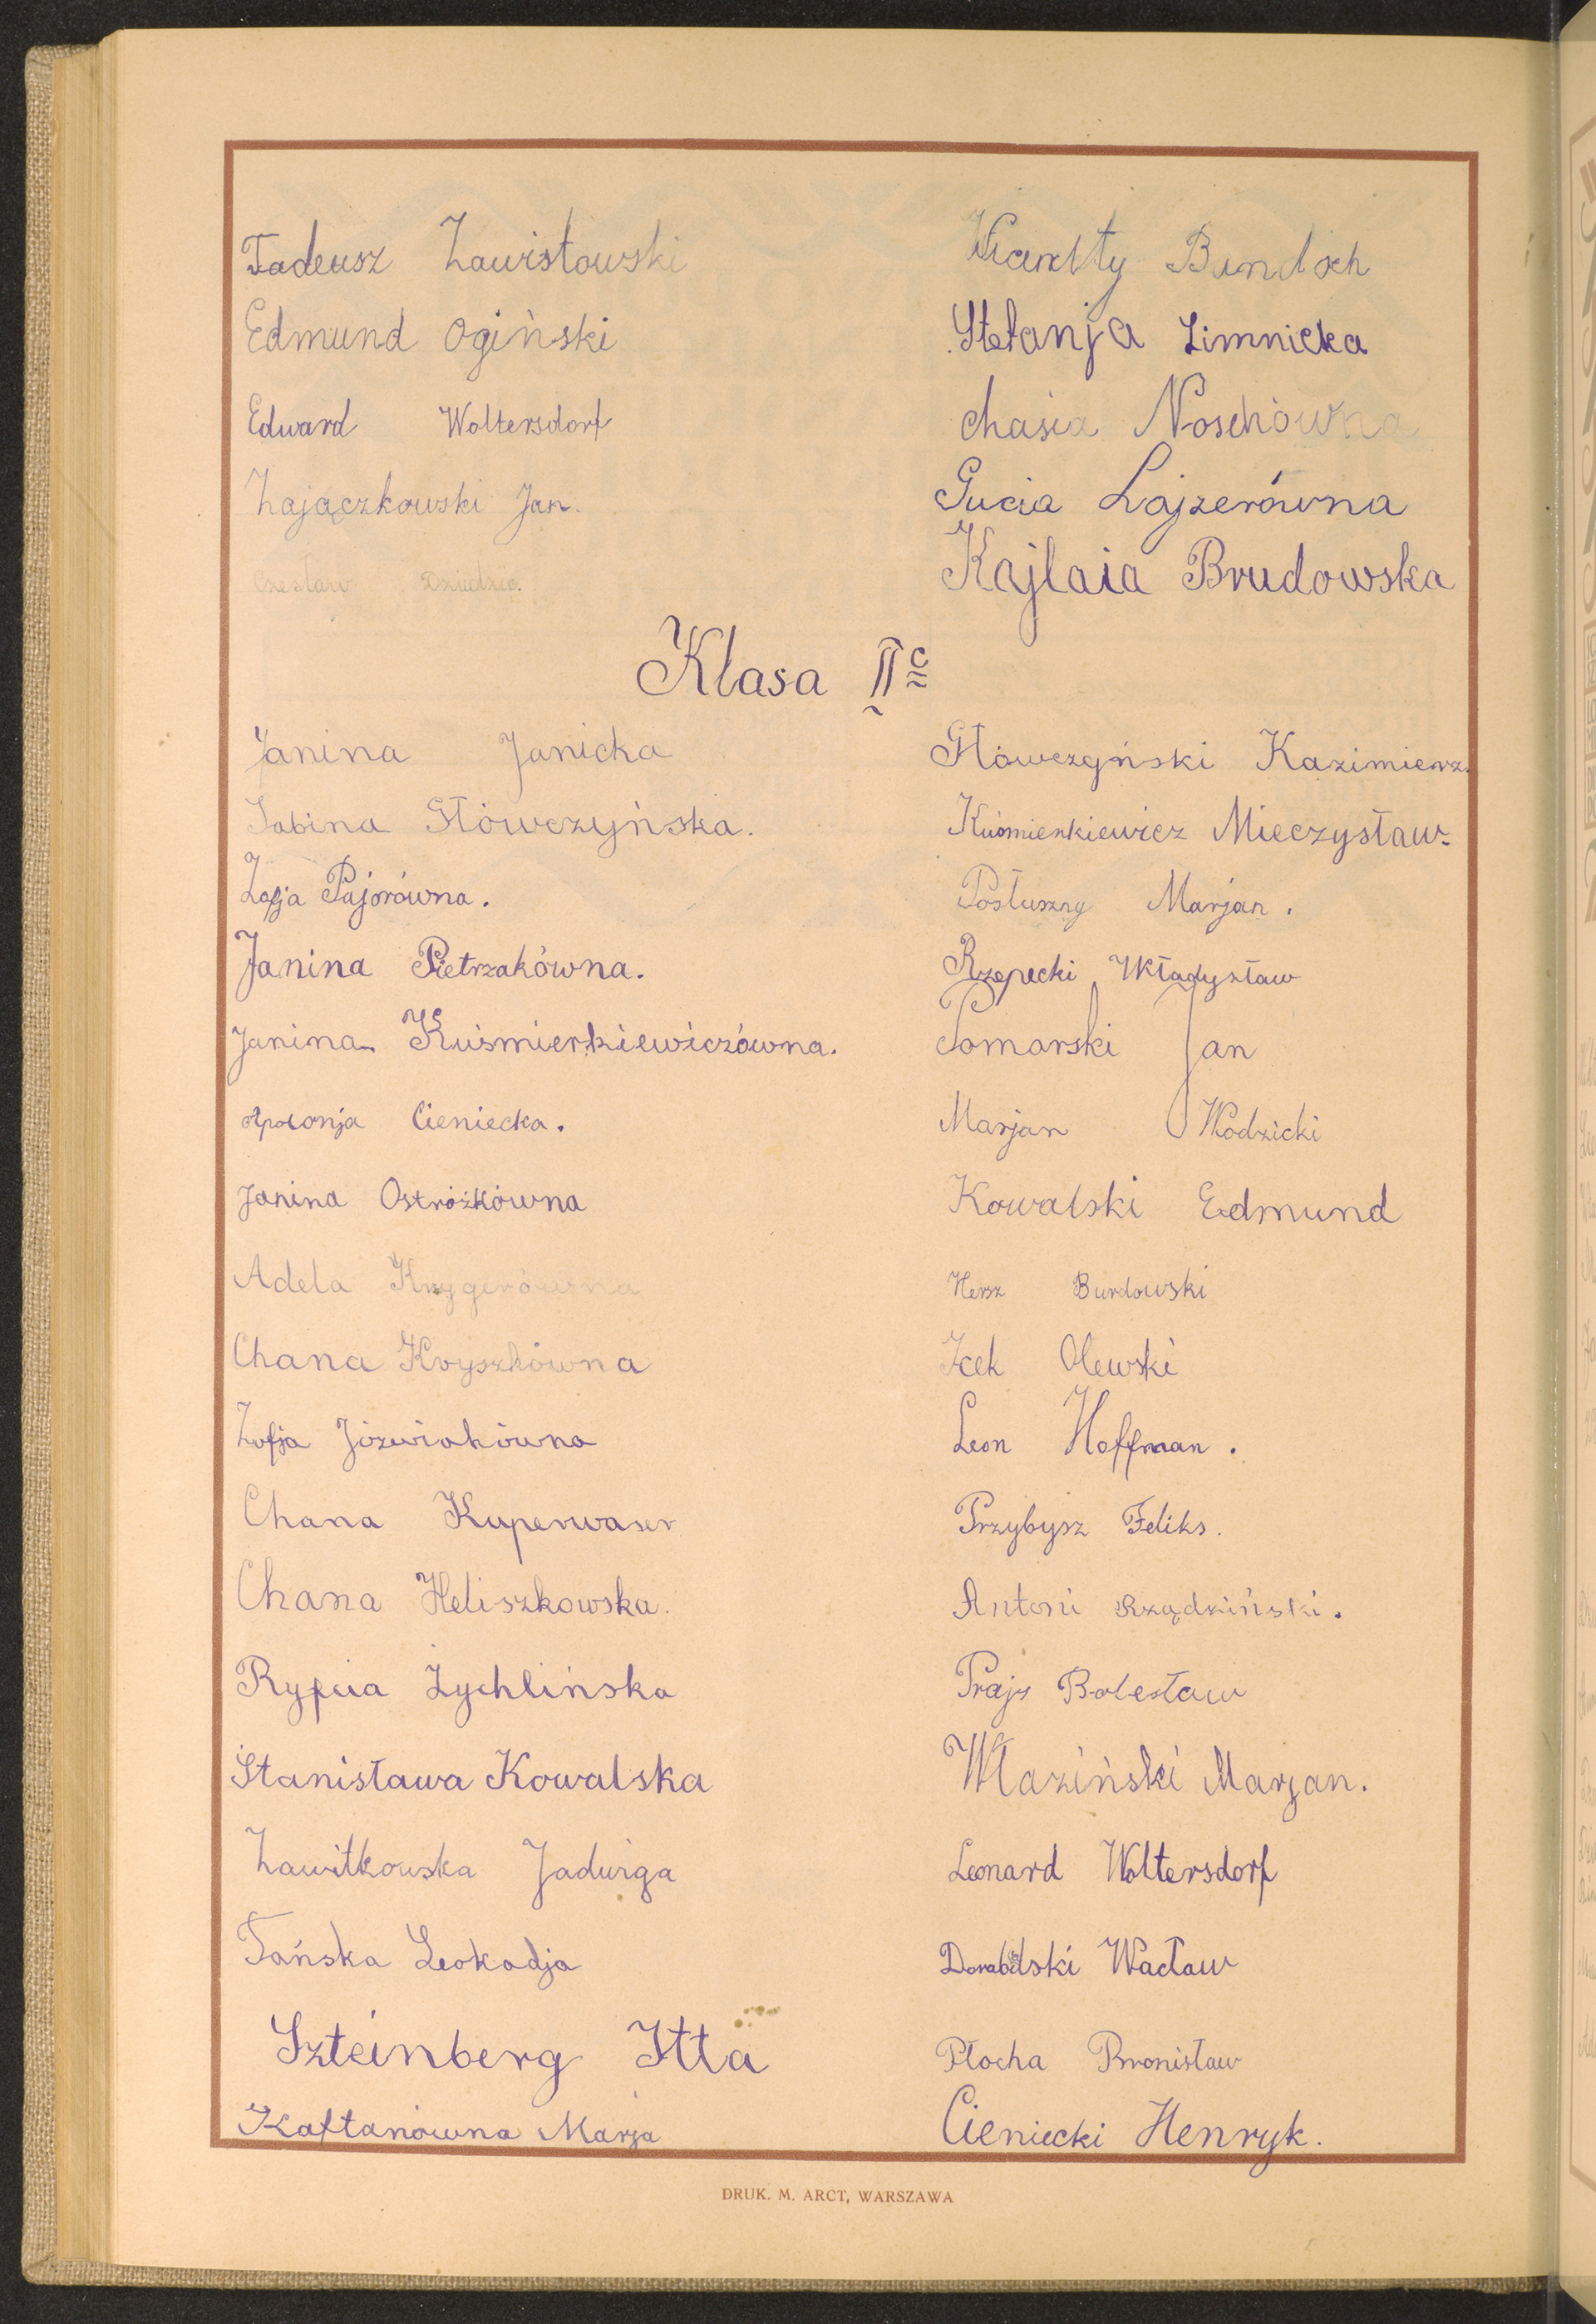 Tadeusz Zawistowski
Edmund Ogiński
Edward Woltersdorf
Zajączkowski Jan.
Czesław
Bandoch
Stefanja Limnicka
Chasia Noschówna
Gucia Lajzerówna
Kajlaia Brudowska
Klasa IIc
Janina Janicka
Sabina Główczyńska.
Zofja Pajorówna.
Janina Pietrzakówna.
Janina Kuśmierkiewiczówna.
Apolonja Cieniecka.
Janina Ostrożkówna
Adela Krygerówna
Chana Kryszkówna
Zofja Józwiakówna
Chana Kuperwaser
Chana Heliszkowska.
Rypcia Żychlińska
Stanisława Kowalska
Zawitkowska Jadwiga
Tańska Leokadja
Szteinberg Itta
Kaftanówna Marja
Główczyński Kazimierz.
Kuśmierkiewicz Mieczysław.
Posłuszny Marjan.
Rzepecki Władysław
Pomorski Jan
Marjan Wodzicki
Kowalski Edmund
Hersz Burdowski
Icek Olewski
Leon Hoffman.
Przybysz Feliks.
Antoni Rządziński.
Prajs Bolesław
Właziński Marjan.
Leonard Woltersdorf
Wacław
Płocha Bronisław
Cieniecki Henryk.
DRUK. M. ARCT, WARSZAWA